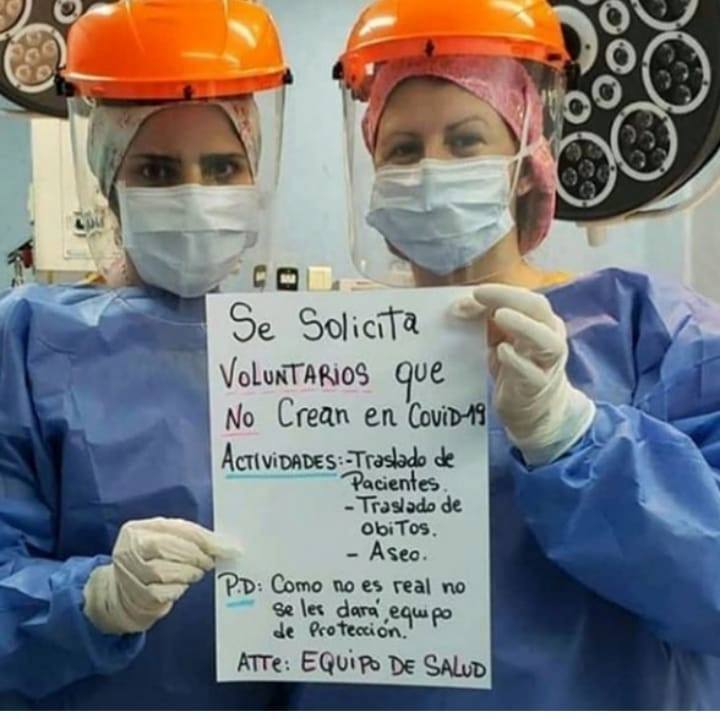 Se Solicita
VOLUNTARIOS que
No Crean en COViD-19
ACTiViDADES:-Traslado de
Pacientes.
- Traslado de
ObiTos.
- Aseo.
P.D: Como no es real no
se les dará equipo
de Protección.
ATTe: EQUiPO DE SALUD